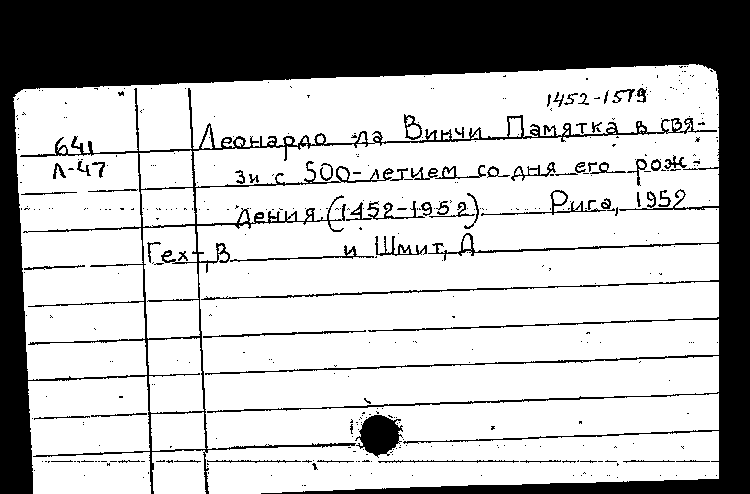 1452-1519
641 Леонардо да Винчи. Памятка в свя-
Л-47 зи с 500-летием со дня его рож-
дения. (1452-1952). Рига, 1952
Гехт, В. и Шмит, Д.